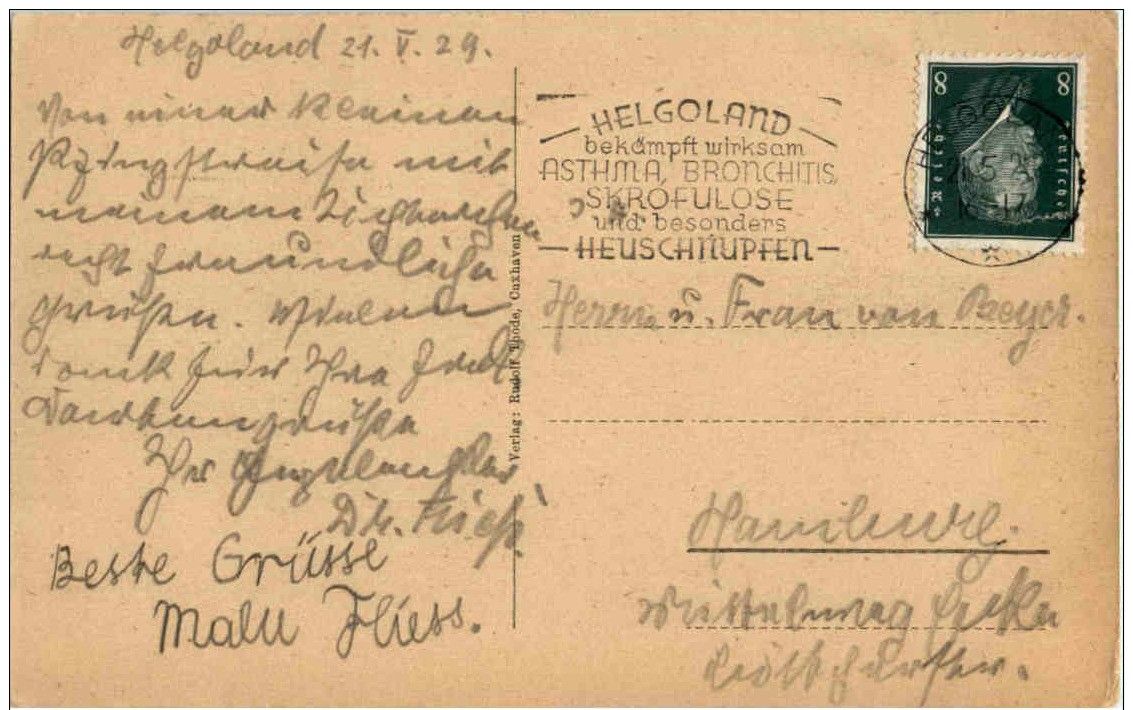 Helgoland 21. V. 29.
Von einer kleinen
Pfingstreise mit
meinem Töchterchen
recht freundliche
Grüße. Vielen
Dank für Ihre
Ihr
Dr. Fließ.
Beste Grüsse
Malu Fliess.
Verlag: Rudolf Rhode, Cuxhaven
HELGOLAND
bekämpft wirksam
ASTHMA, BRONCHITIS,
SKROFULOSE
und besonders
HEUSCHNUPFEN
8 8
Deutsches Reich
Herrn u. Frau von Beyer.
Hamburg.
Mittelweg Ecke